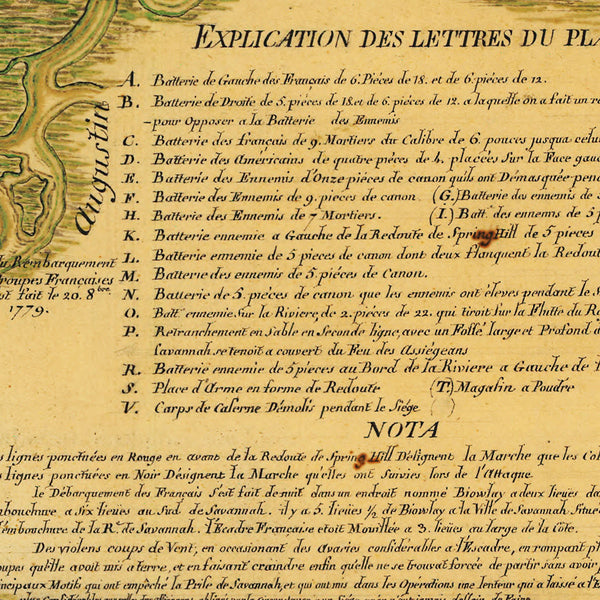 EXPLICATION DES LETTRES DU PLA
A. Batterie de Gauche des Français de 6. Piéces de 18. et de 6. piéces de 12.
B. Batterie de Droite de 5. piéces de 18. et de 6. piéces de 12. a laquelle on a fait un
pour Opposer a la Batterie des Ennemis
C. Batterie des français de 9. Mortiers du Calibre de 6. pouces jusqua celui
D. Batterie des Americains de quatre piéces de 4. placées Sur la Face gau
E. Batterie des Ennemis d'Onze piéces de canon qu'ils ont Démasquée pen
F. Batterie des Ennemis de 9. piéces de canon (G.) Batterie des ennemis de
H. Batterie des Ennemis de 7 Mortiers. (I.) Batt. des ennemis de 5 p
K. Batterie ennemie a Gauche de la Redoute de Spring Hill de 5 pieces
L. Batterie ennemie de 5 pieces de canon dont deux flanquent la Redout
M. Batterie des ennemis de 5. piéces de Canon.
N. Batterie de 5. piéces de canon que les ennemis ont élevés pendant le S
O. Batt. ennemie Sur la Riviere, de 2. piéces de 22. qui tiroit Sur la
P. Retranchement en Sable en Seconde ligne, avec un Fossé large et Profond d
Savannah se tenoit a couvert du Feu des Assiégeans
R. Batterie ennemie de 5 pieces au Bord de la Riviere a Gauche de
S. Place d'Arme en forme de Redoute (T.) Magasin a Poudre
V. Corps de Caserne Démolis pendant le Siége
Augustin
Rembarquement
roupes Françaises
st fait le 20. 8bre
1779.
NOTA
s lignes ponctuées en Rouge en avant de la Redoute de Spring Hill Désignent la Marche que les Col
s lignes ponctuées en Noir Désignent la Marche qu'elles ont Suivies lors de l'Attaque.
Le Débarquement des Français s'est fait de nuit dans un endroit nommé Biowlay a deux lieües da
mbouchure a six lieües au Sud de Savannah. il y a 5. lieües 1/2 de Biowlay a la Ville de Savannah Situe
l'embouchure de la R. de Savannah. l'Ecadre Française etoit Mouillée a 3. lieües au large de la Côte.
Des violens coups de Vent, en occasionant des avaries considérables a l'Escadre, en rampant pl
oupes qu'elle avoit mis a terre, et en faisant craindre enfin qu'elle ne se trouvat forcée de partir sans avoir
incipaux Motifs qui ont empêché la Prise de Savannah, et qui ont mis dans les Opérations une lenteur qui a laissé a l'E